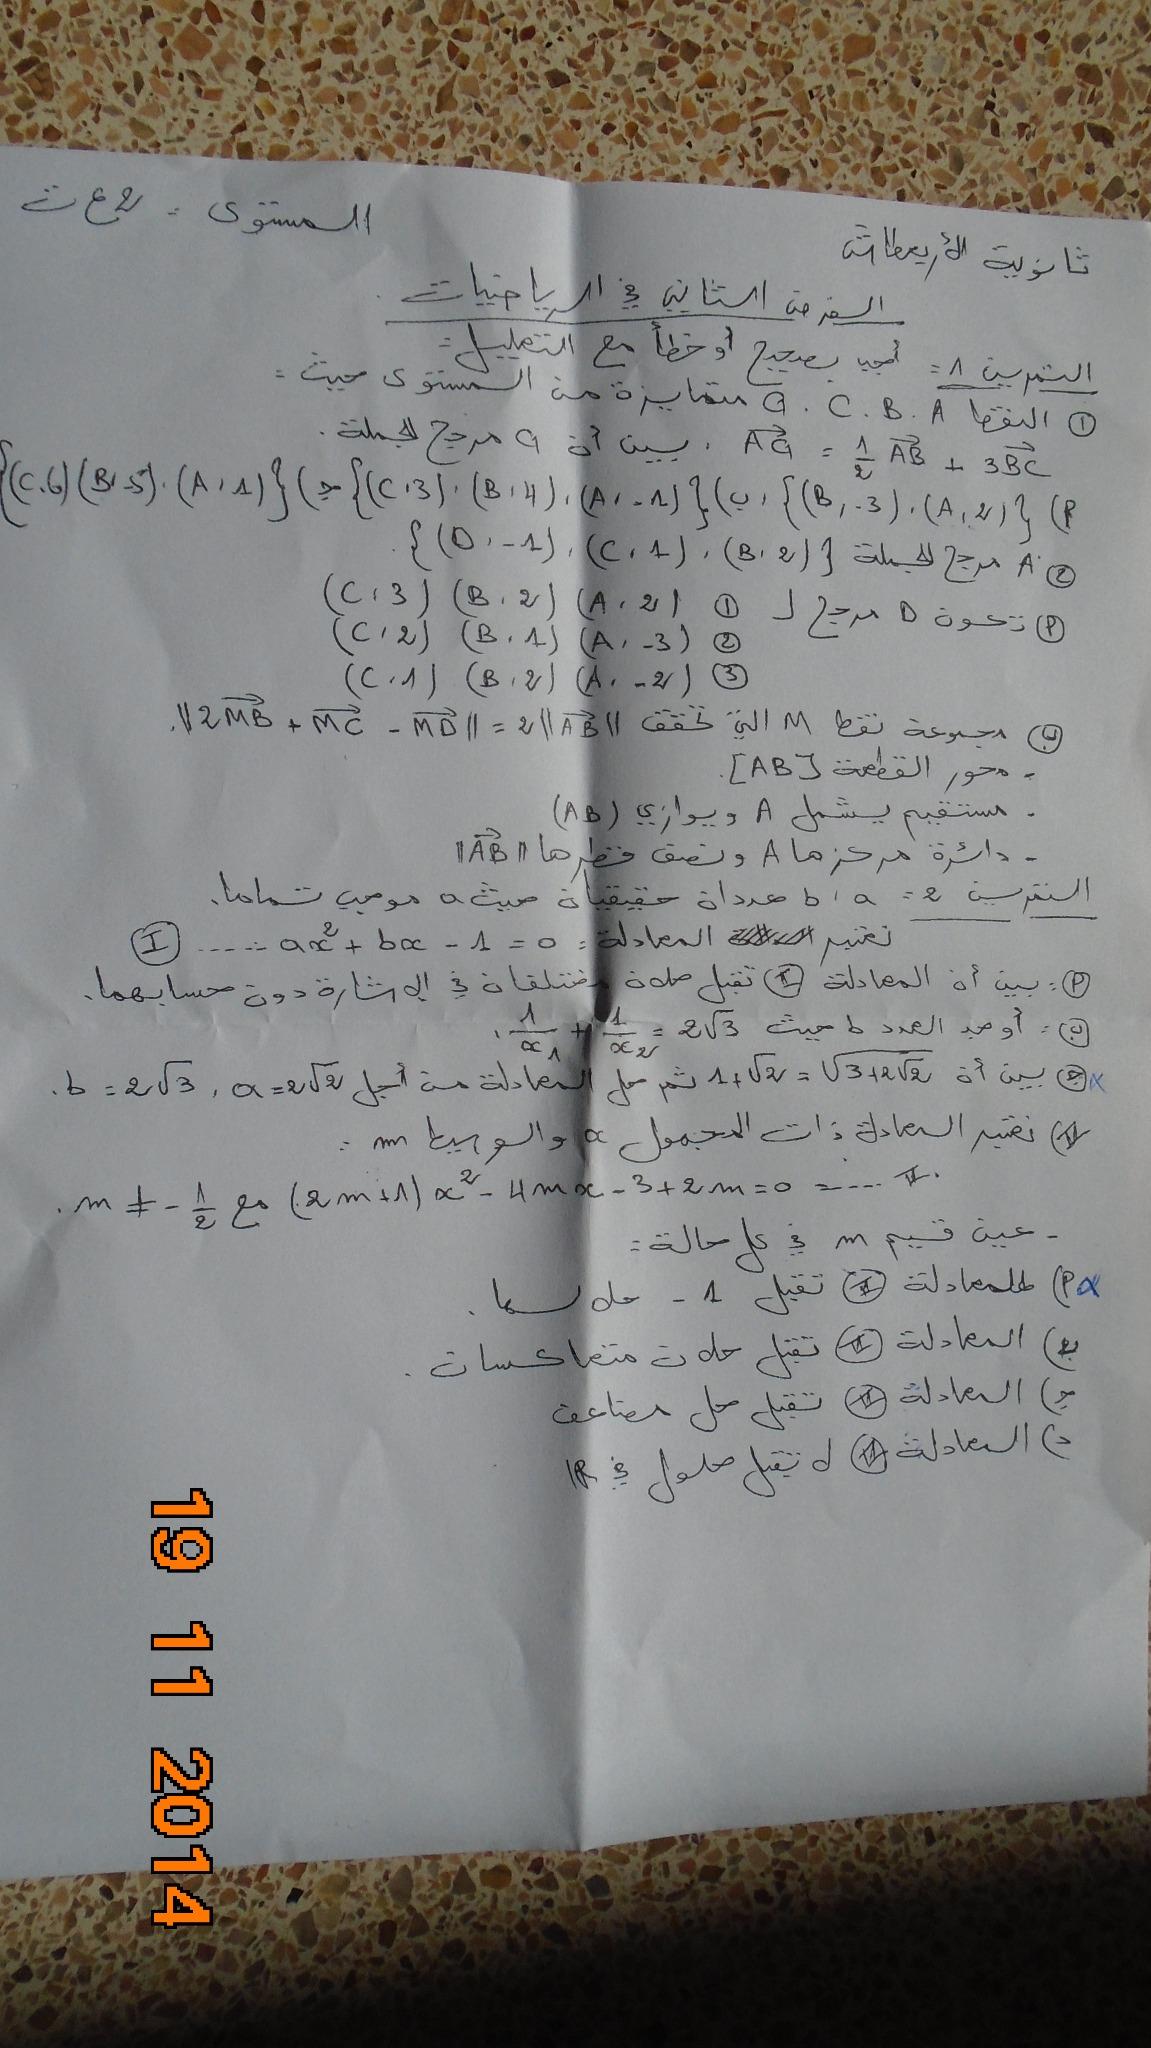 ثانوية الأربعطاش
المستوى : 2 ع ت
الفرض الثاني في الرياضيات .
التمرين 1 : أجب بصحيح أو خطأ مع التعليل :
① النقط A . B . C . G متمايزة من المستوى حيث :
AG = 1/2 AB + 3BC . بين أن G مرجح الجملة .
أ) {(A,2) . (B,-3)} , ب) {(A,-1) . (B,4) . (C,3)} ج) {(A,1) . (B,-5) (C,6)}
② A مرجح الجملة {(B,2) , (C,1) , (D,-1)} .
أ) تكون D مرجح لـ ① (A,2) (B,2) (C,3)
② (A,-3) (B,1) (C,2)
③ (A,-2) (B,2) (C,1)
ب) مجموعة نقط M التي تحقق ||2MB + MC - MD|| = 2||AB|| .
- محور القطعة [AB] .
- مستقيم يشمل A ويوازي (AB)
- دائرة مركزها A ونصف قطرها ||AB||
التمرين 2 : a , b عددان حقيقيان حيث a موجب تماما .
نعتبر المعادلة : ax² + bx - 1 = 0 ..... Ⓘ
أ) : بين أن المعادلة Ⓘ تقبل حلان مختلفان في الإشارة دون حسابهما .
ب) : أوجد العدد b حيث 1/x₁ + 1/x₂ = 2√3 .
ج) بين أن 1+√2 = √(3+2√2) ثم حل المعادلة من أجل a = 2√2 , b = 2√3 .
II) نعتبر المعادلة ذات المجهول x والوسيط m :
(2m+1)x² - 4mx - 3 + 2m = 0 ..... II مع m ≠ -1/2 .
- عين قيم m في كل حالة :
أ) المعادلة II تقبل -1 حلا لها .
ب) المعادلة II تقبل حلان متعاكسان .
ج) المعادلة II تقبل حل مضاعف
د) المعادلة II لا تقبل حلول في IR
19 11 2014